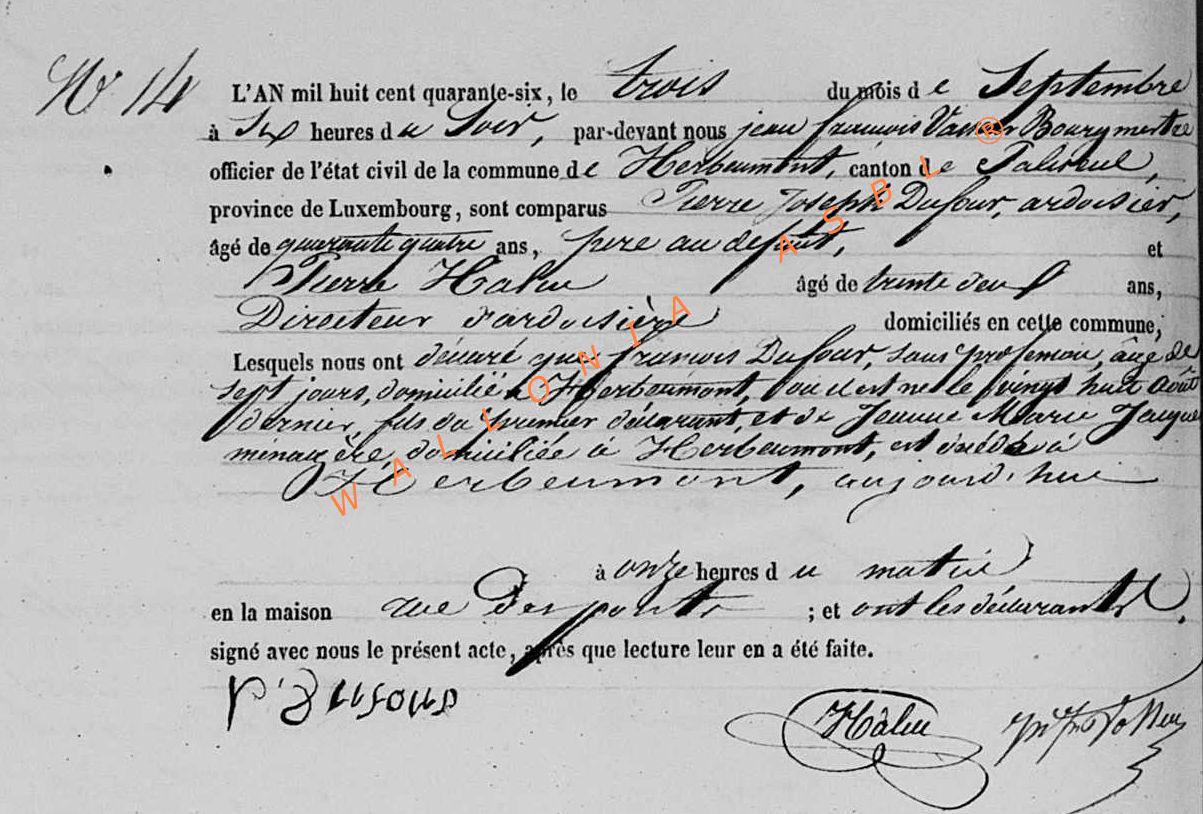 N° 14
L'AN mil huit cent quarante-six, le trois du mois de Septembre
à Six heures du Soir, par-devant nous jean françois Bourgmestre
officier de l'état civil de la commune de Herbeumont, canton de Paliseul,
province de Luxembourg, sont comparus Pierre Joseph Dufour, ardoisier,
âgé de quarante quatre ans, pere au defunt, et
Pierre Halin âgé de trente deux ans,
Directeur d'ardoisière domiciliés en cette commune,
Lesquels nous ont déclaré que françois Dufour, sans profession, âgé de
sept jours, domicilié à Herbeumont, où il est né le vingt huit Août
dernier, fils du premier déclarant, et de Jeanne Marie Jacque
ménagère, domiciliée à Herbeumont, est décédé à
Herbeumont, aujourd'hui
à onze heures du matin
en la maison rue Des ponts ; et ont les déclarants
signé avec nous le présent acte, après que lecture leur en a été faite.
P. J. Dufour
Halin
WALLONIA ASBL ®